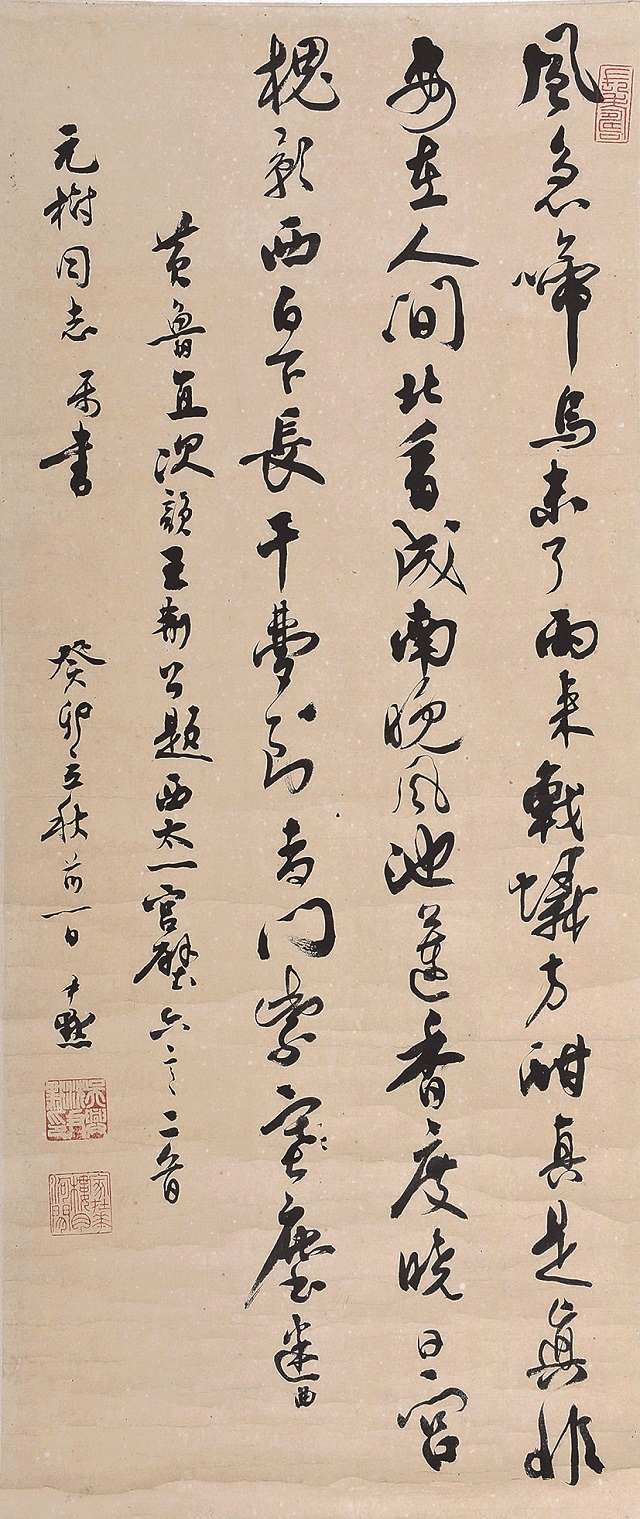 風急啼烏未了雨來戰蟻方酣真是真非
安在人間北看成南晚風池蓮香度曉日宮
槐影西白下長干夢到青門紫塞塵迷曲
黃魯直次韻王荊公題西太一宮壁六言二首
元樹同志屬書 癸卯立秋前一日 尹默